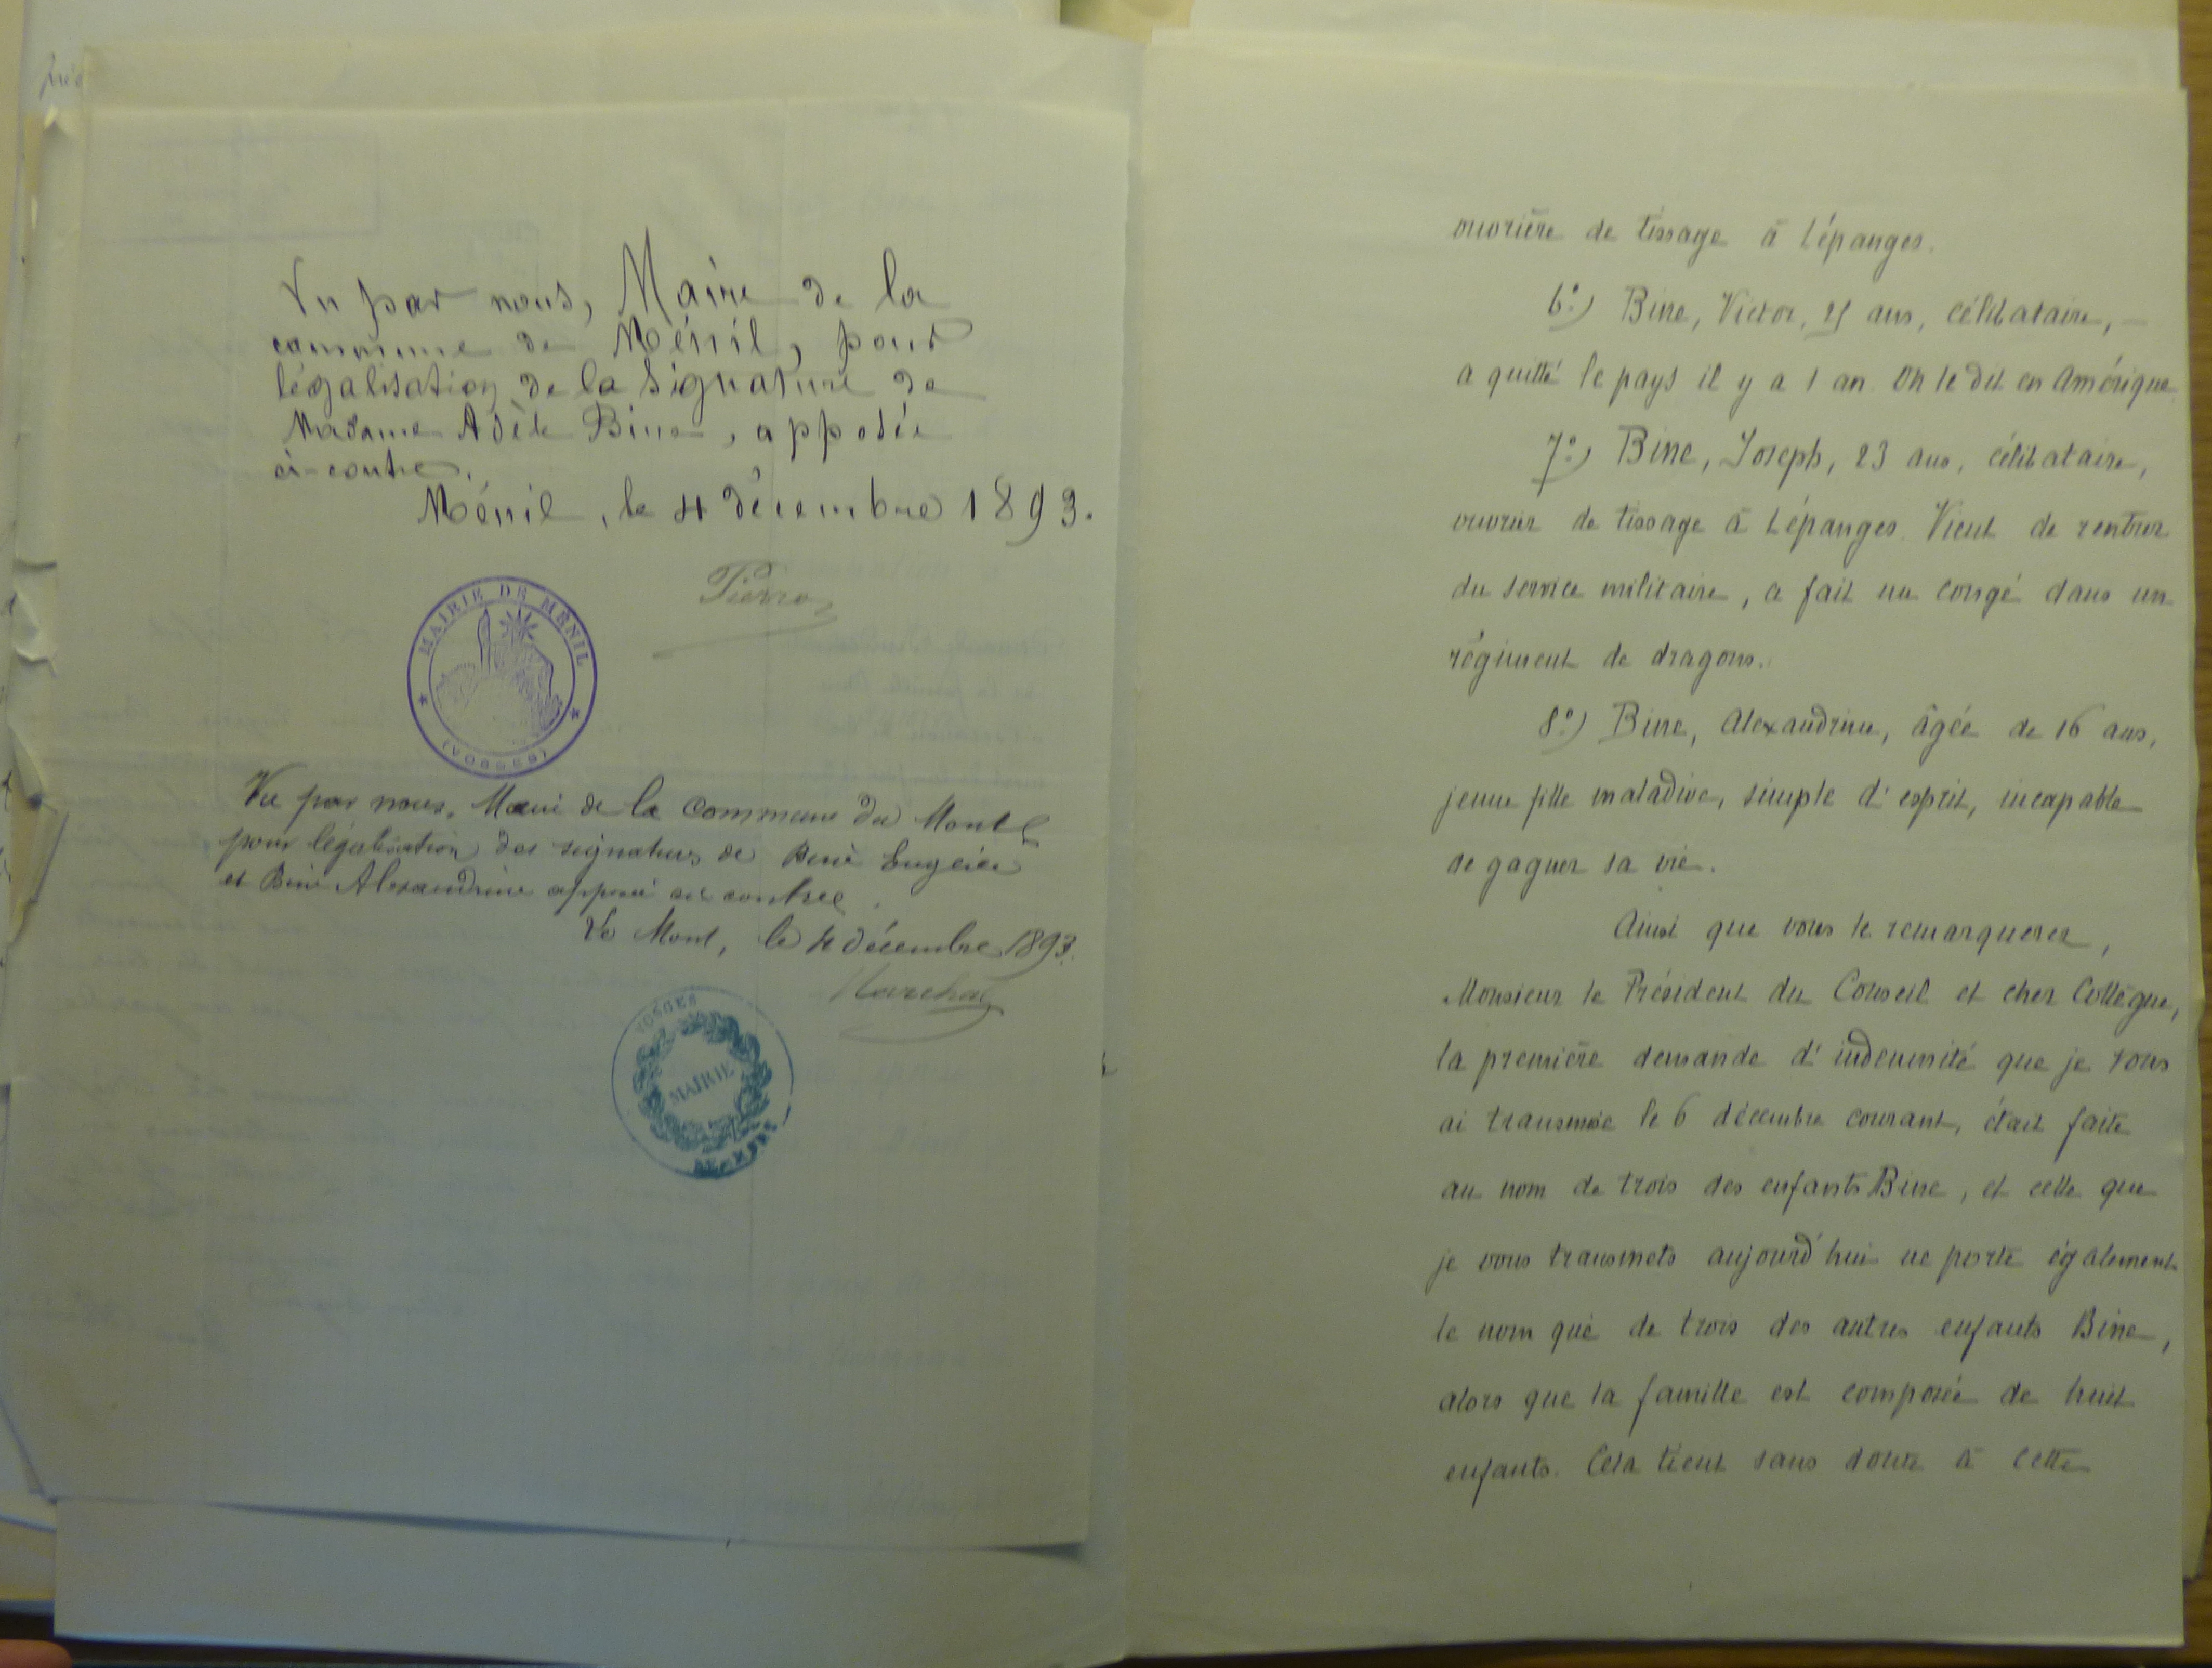 Vu par nous, Maire de la
commune de Ménil, pour
légalisation de la signature de
Madame Adèle Bine, apposée
ci-contre.
Ménil, le 4 décembre 1893.
Pierron
MAIRIE DE MÉNIL
(VOSGES)
Vu par nous, Maire de la Commune du Mont
pour légalisation des signatures de Biné Eugénie
et Biné Alexandrine apposé ci contre.
Le Mont, le 4 décembre 1893.
Marchal
VOSGES
MAIRIE
ouvrière de tissage à Lépanges.
6°) Bine, Victor, 25 ans, célibataire, —
a quitté le pays il y a 1 an. On le dit en Amérique
7°) Bine, Joseph, 23 ans, célibataire,
ouvrier de tissage à Lépanges. Vient de rentrer
du service militaire, a fait un congé dans un
régiment de dragons.
8°) Bine, Alexandrine, âgée de 16 ans,
jeune fille maladive, simple d'esprit, incapable
de gagner sa vie.
Ainsi que vous le remarquerez,
Monsieur le Président du Conseil et cher Collègue,
la première demande d'indemnité que je vous
ai transmise le 6 décembre courant, était faite
au nom de trois des enfants Bine, et celle que
je vous transmets aujourd'hui ne porte également
le nom que de trois des autres enfants Bine,
alors que la famille est composée de huit
enfants. Cela tient sans doute à cette